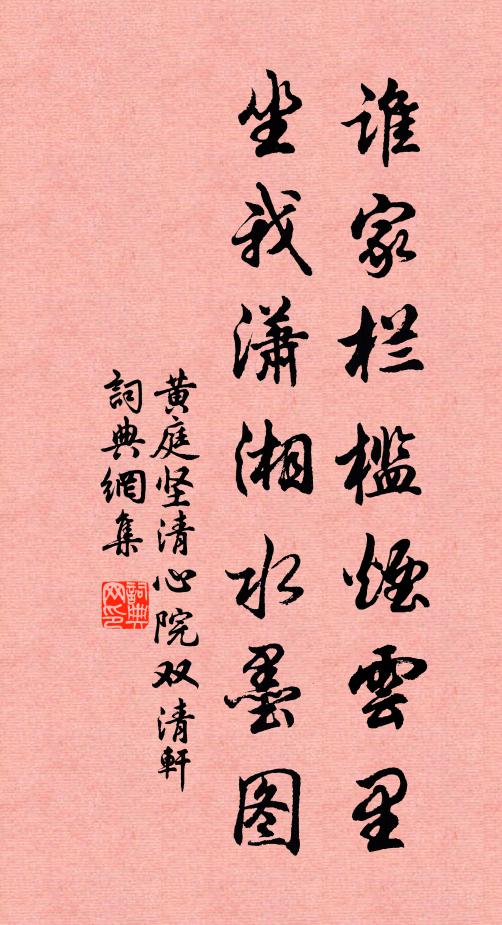 谁家栏槛煙雲里
坐我潇湘水墨图
黄庭坚清心院双清軒
詞典網集
詞典网印